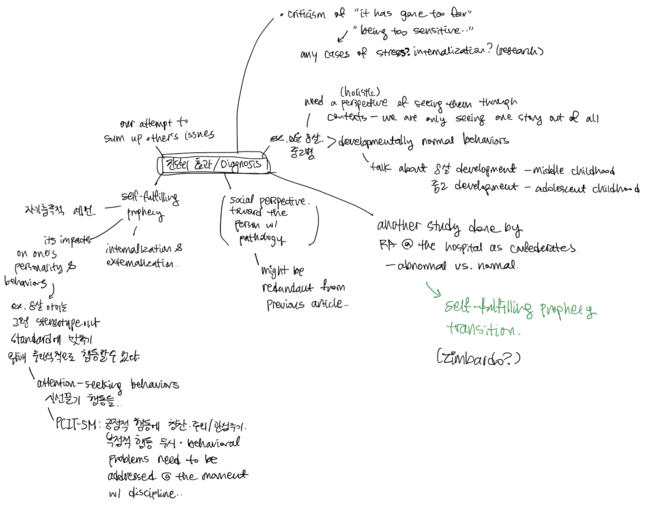 • criticism of "it has gone too far"
"being too sensitive.."
any cases of stress? internalization? (research)
(holistic)
need a perspective of seeing them through
contexts – we are only seeing one story out of all
our attempt to
sum up other's issues
ex. 8살,
중2병
> developmentally normal behaviors
talk about 8살 development - middle childhood
중2 development - adolescent childhood
진단의 효과/Diagnosis
self-fulfilling
prophecy
자기충족적 예언
its impacts
on one's
personality &
behaviors
internalization &
externalization..
(social perspective
toward the
person w/
pathology)
might be
redundant from
previous article..
another study done by
RA @ the hospital as confederates.
- abnormal vs. normal.
self-fulfilling prophecy
transition.
(Zimbardo?)
ex. 8살 아이는
그런 stereotype이나
standard에 맞추기
위해 무의식적으로 행동할 수 있다
attention-seeking behaviors
시선끌기 행동들..
PCIT-SM: 긍정적 행동에 칭찬·주의/관심주기.
부정적 행동 무시 · behavioral
problems need to be
addressed @ the moment
w/ discipline...